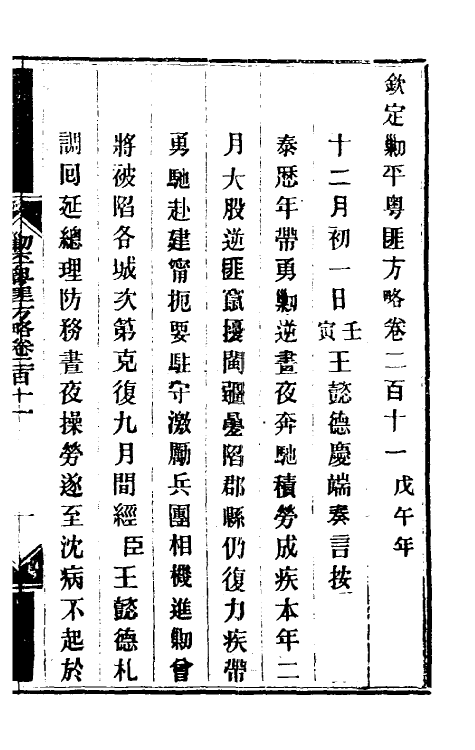 欽定勦平粵匪方略卷二百十一 戊午年
十二月初一日壬寅王懿德慶端奏言按
泰歷年帶勇勦逆晝夜奔馳積勞成疾本年二
月大股逆匪竄擾閩疆疊陷郡縣仍復力疾帶
勇馳赴建甯扼要駐守激勵兵團相機進勦曾
將被陷各城次第克復九月間經臣王懿德札
調回延總理防務晝夜操勞遂至沈病不起於
勦平粵匪方略卷二百十一 一